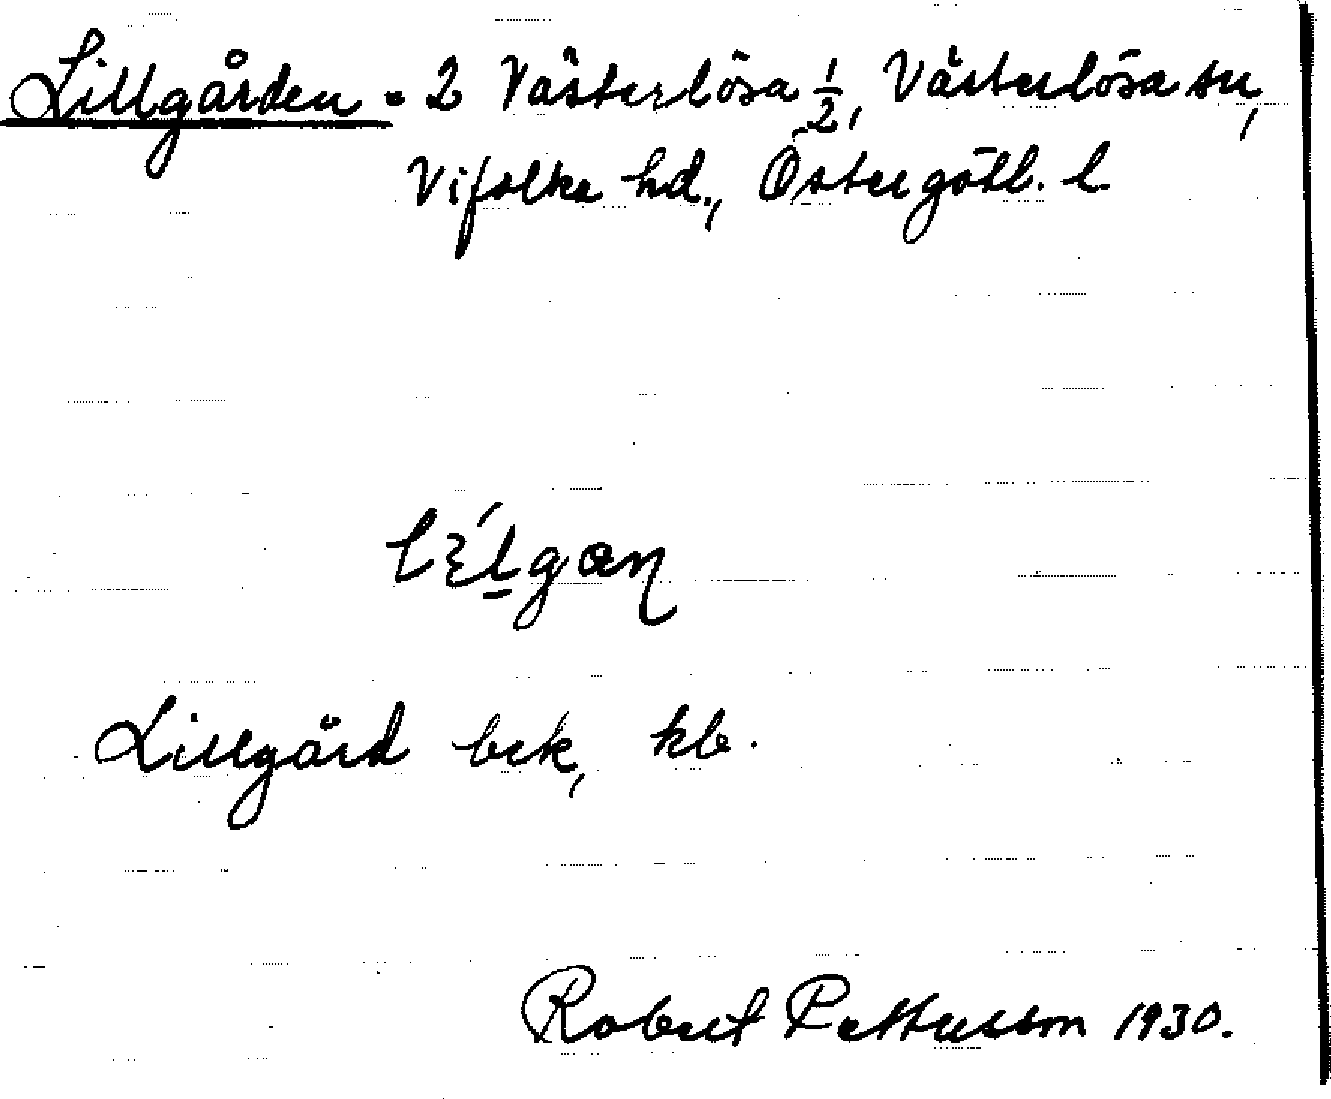 Lillgården = 2 Västerlösa 1/2, Västerlösa sn,
Vifolka hd., Östergötl. l.
Lillgård bek, kb.
Robert Pettersson 1930.